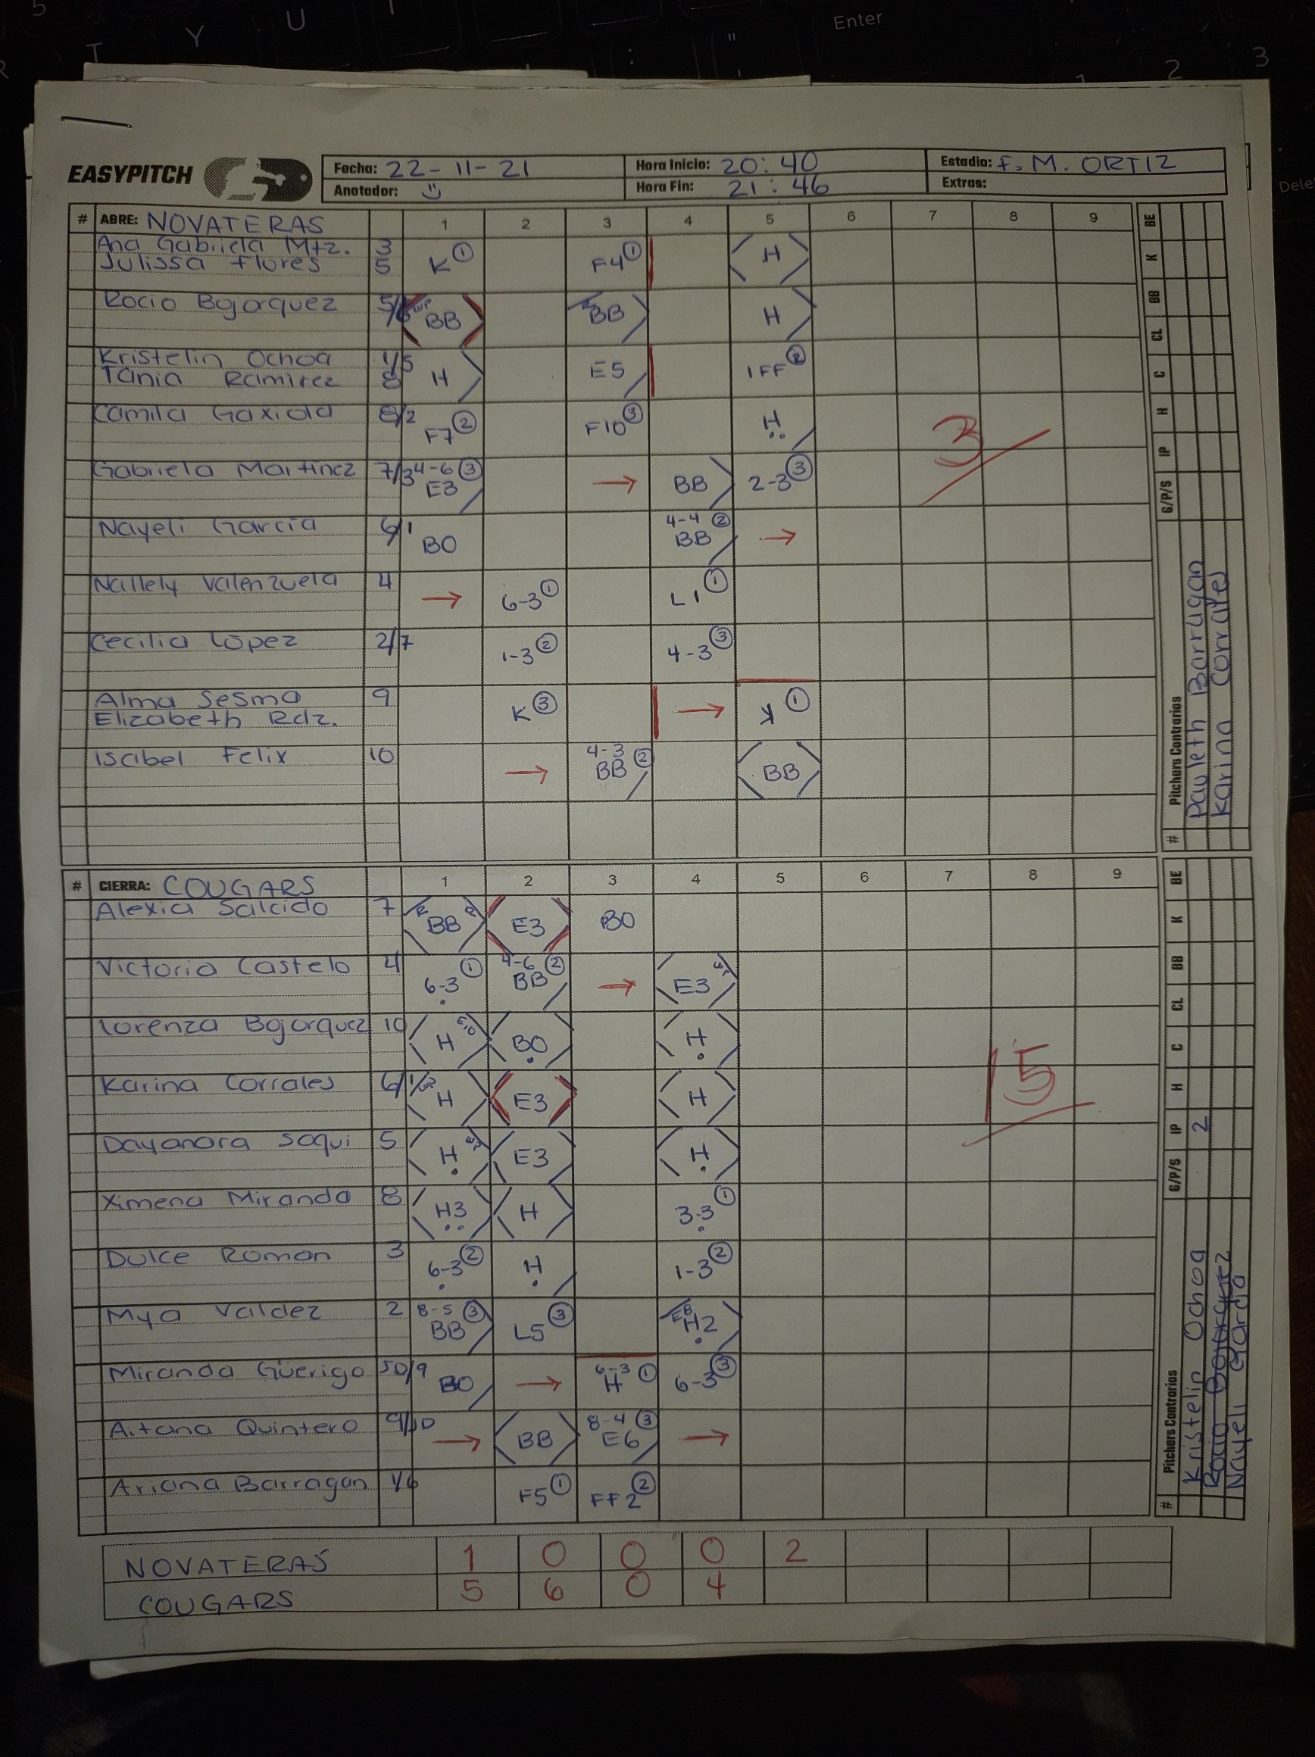 5 T Y U I Enter
: " 1 2 3
R
Delete
EASYPITCH
Fecha: 22-11-21 Hora Inicio: 20:40 Estadio: F. M. ORTIZ
Anotador: Hora Fin: 21:46 Extras:
# ABRE: NOVATERAS 1 2 3 4 5 6 7 8 9
Ana Gabriela Mtz. 3
Julissa Flores 5 K① F4① H
Rocio Bojorquez BB BB H
Kristelin Ochoa 1/5
Tania Ramirez 8 H E5 IFF②
Camila Gaxiola 8/2 F7② F10③ H
Gabriela Martinez 7/3 4-6③ E3 → BB 2-3③
Nayeli Garcia 6/1 BO 4-4② BB →
Nallely Valenzuela 4 → 6-3① L1①
Cecilia Lopez 2/7 1-3② 4-3③
Alma Sesma 9
Elizabeth Rdz. K③ → K①
Isabel Felix 10 → 4-3② BB BB
3
Pitchers Contrarios G/P/S IP H C CL BB K BE
#
Pauleth Barragan
Karina Corrales
# CIERRA: COUGARS 1 2 3 4 5 6 7 8 9
Alexia Salcido 7 BB E3 BO
Victoria Castelo 4 6-3① 4-6② BB → E3
Lorenza Bojorquez 10 H BO H
Karina Corrales 6/1 H E3 H
Dayanara Soqui 5 H E3 H
Ximena Miranda 8 H3 H 3-3①
Dulce Roman 3 6-3② H 1-3②
Mya Valdez 2 8-5③ BB L5③ E8 H2
Miranda Güerigo 50/9 BO → 6-3① H 6-3③
Aitana Quintero 9/10 → BB 8-4③ E6 →
Ariana Barragan 1/6 F5① FF2②
15
# Pitchers Contrarios G/P/S IP H C CL BB K BE
Kristelin Ochoa 2
Rocio Bojorquez
Nayeli Garcia
NOVATERAS 1 0 0 0 2
COUGARS 5 6 0 4